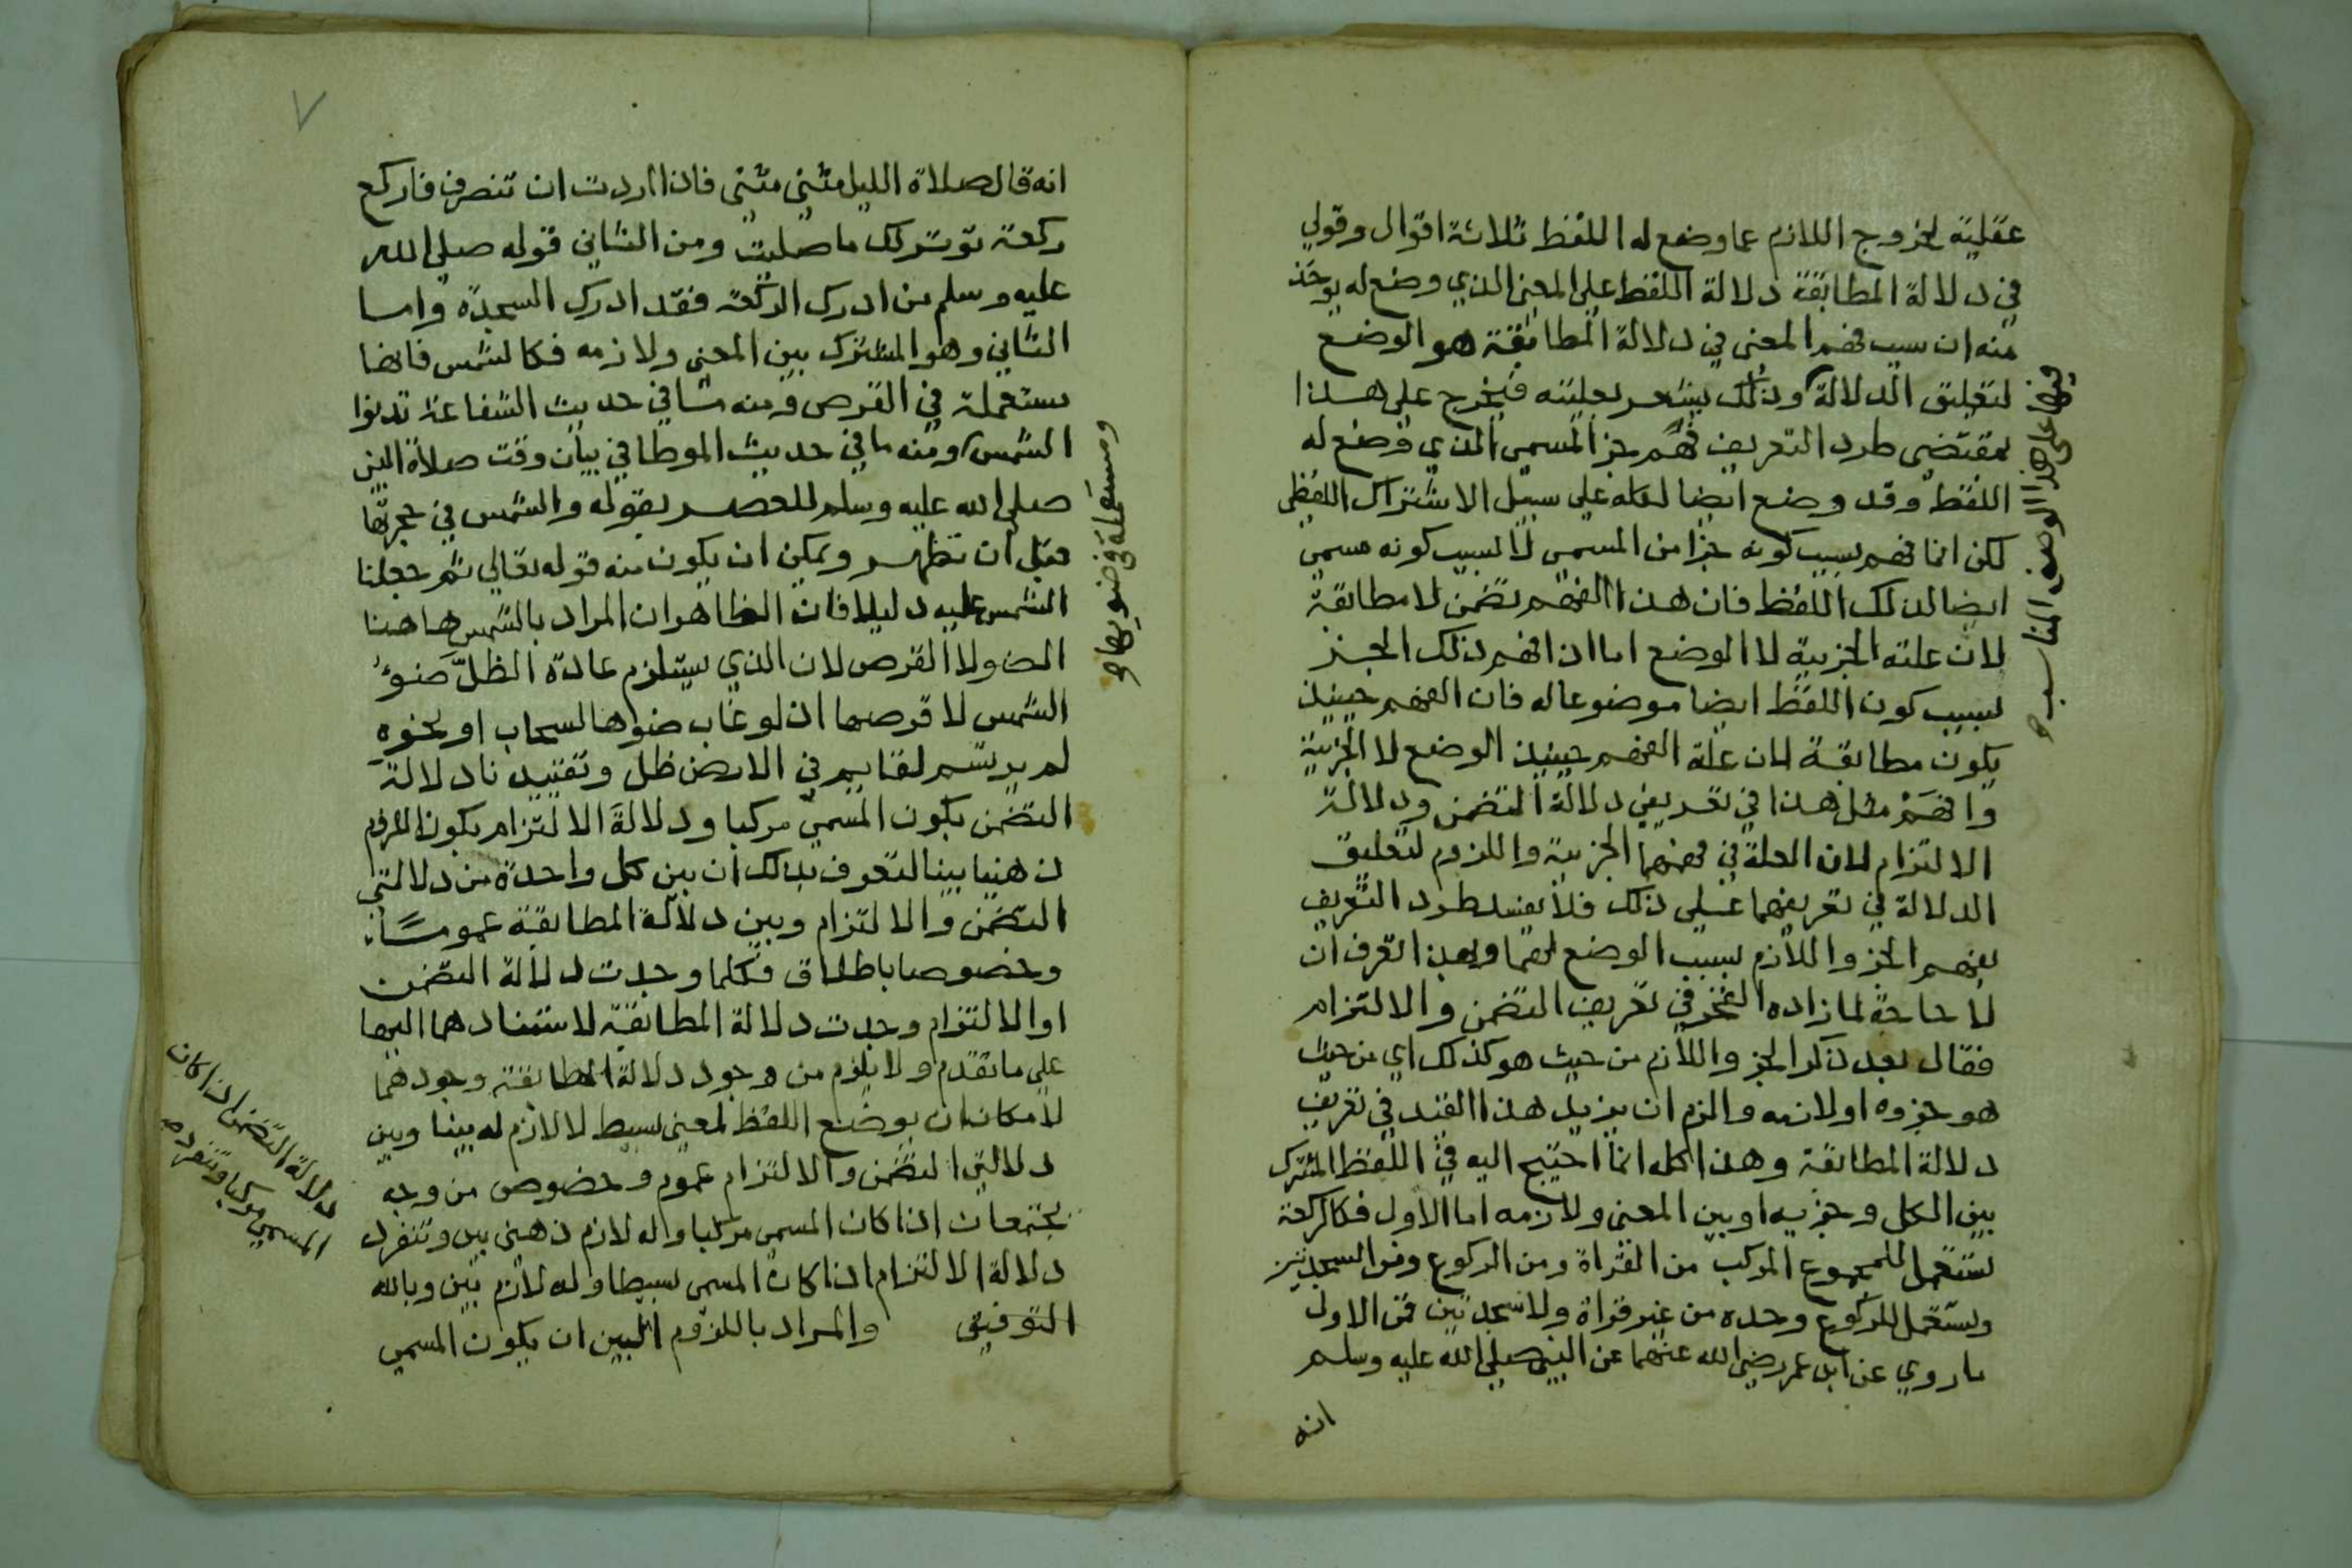 عقلية لخروج اللازم عما وضع له اللفظ ثلاثة اقوال وقولي
في دلالة المطابقة دلالة اللفظ على المعنى الذي وضع له يوخذ
منه ان سبب فهم المعنى في دلالة المطابقة هو الوضع
لتعليق الدلالة وذلك يشعر بعليته فيخرج على هذا
بمقتضى طرد التعريف فهم جز المسمى الذي وضع له
اللفظ وقد وضع ايضا لكله على سبيل الاشتراك اللفظى
لكن انما فهم بسبب كونه جزا من المسمى لا لسبب كونه مسمى
ايضا لذلك اللفظ فان هذا الفهم تضمن لا مطابقة
لان علته الجزيية لا الوضع اما اذا فهم ذلك الجز
لسبب كون اللفظ ايضا موضوعا له فان الفهم حينيذ
يكون مطابقة لان علة الفهم حينيذ الوضع لا الجزيية
وافهم مثل هذا في تعريفي دلالة التضمن ودلالة
الالتزام لان العلة في فهمهما الجزيية واللزوم لتعليق
الدلالة في تعريفهما على ذلك فلا يفسد طرد التعريف
بفهم الجز واللازم بسبب الوضع لهما وبهذا تعرف ان
لا حاجة لما زاده الفخر في تعريف التضمن والالتزام
فقال بعد ذكر الجز واللازم من حيث هو كذلك اي من حيث
هو جزوه او لازمه والزم ان يزيد هذا القيد في تعريف
دلالة المطابقة وهذا كله انما احتيج اليه في اللفظ المشترك
بين الكل وجزيه او بين المعنى ولازمه اما الاول فكالركعة
تستعمل للمجموع المركب من القراة ومن الركوع ومن السجدتين
وتستعمل للركوع وحده من غير قراة ولا سجدتين فمن الاول
ما روي عن ابن عمر رضي الله عنهما عن النبي صلى الله عليه وسلم
انه
فهما على هذا الوصف المناسب
انه قال صلاة الليل مثنى مثنى فاذا اردت ان تنصرف فاركع
ركعة توتر لك ما صليت ومن الثاني قوله صلى الله
عليه وسلم من ادرك الركعة فقد ادرك السجدة واما
الثاني وهو المشترك بين المعنى ولازمه فكالشمس فانها
مستعملة في القرص ومنه ما في حديث الشفاعة تدنوا
الشمس ومنه ما في حديث الموطا في بيان وقت صلاة النبي
صلى الله عليه وسلم للعصر بقوله والشمس في حجرتها
قبل ان تظهر ويمكن ان يكون منه قوله تعالى ثم جعلنا
الشمس عليه دليلا فان الظاهر ان المراد بالشمس هاهنا
الضو لا القرص لان الذي يستلزم عادة الظل ضوء
الشمس لا قرصها اذ لو غاب ضوها لسحاب او نحوه
لم يرتسم لقايم في الارض ظل وتقييدنا دلالة
التضمن بكون المسمى مركبا ودلالة الالتزام بكون اللزوم
ذهنيا بينا لتعرف بذلك ان بين كل واحدة من دلالتي
التضمن والالتزام وبين دلالة المطابقة عموما
وخصوصا باطلاق فكلما وجدت دلالة التضمن
او الالتزام وجدت دلالة المطابقة لاستنادهما اليها
على ما تقدم ولا يلزم من وجود دلالة المطابقة وجودهما
لامكان ان يوضع اللفظ لمعنى بسيط لا لازم له بينا وبين
دلالتي التضمن والالتزام عموم وخصوص من وجه
يجتمعان اذا كان المسمى مركبا وله لازم ذهني بين وتنفرد
دلالة الالتزام اذا كان المسمى بسيطا وله لازم بين وبالله
التوفيق والمراد باللزوم البين ان يكون المسمى
ومستعملة في ضويها
دلالة التضمن اذا كان
المسمى مركبا وتنفرد
٧